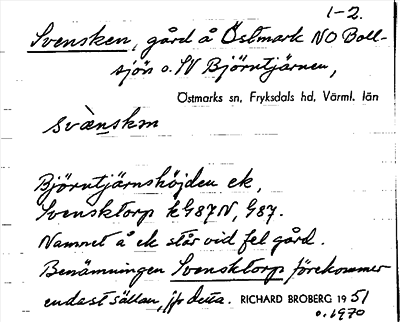 1-2.
Svensken, gård å Östmark NO Boll-
sjön o. SV Björntjärnen,
Östmarks sn, Fryksdals hd, Värml. län
svænskən
Björntjärnshöjden ek,
Svensktorp kG87N, G87.
Namnet å ek står vid fel gård.
Benämningen Svensktorp förekommer
endast sällan, jfr detta. RICHARD BROBERG 1951
o. 1970